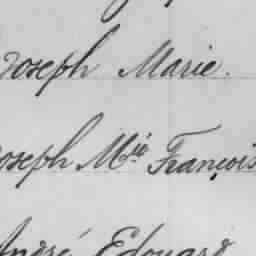 Joseph Marie.
Joseph Mie François
André Edouard